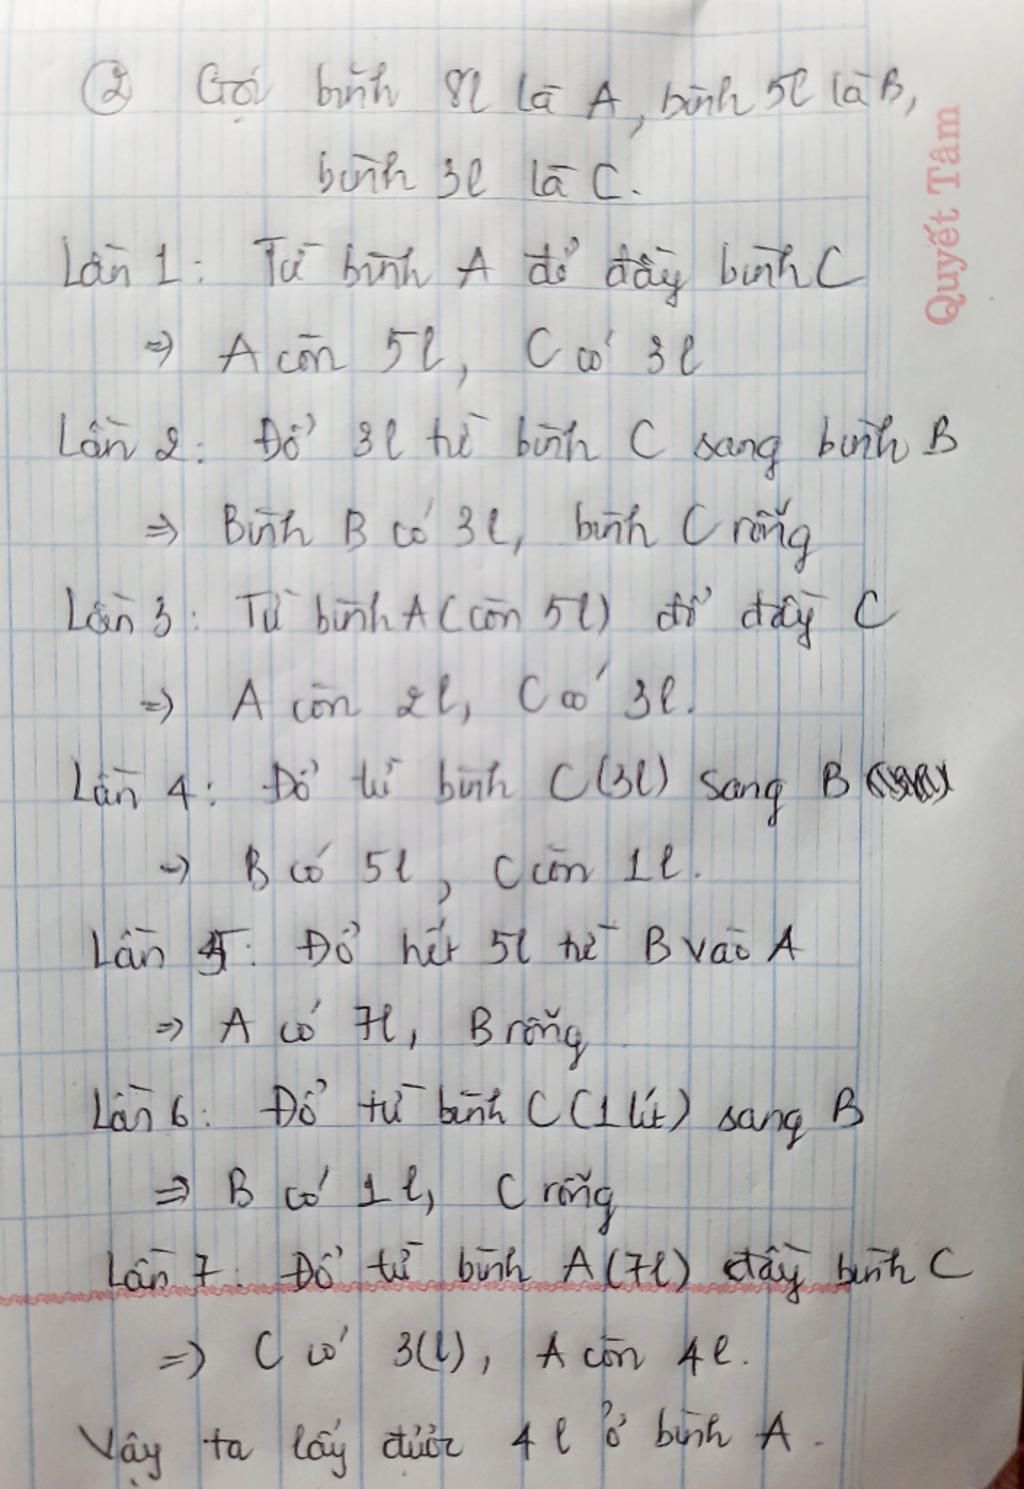 ② Gọi bình 8l là A, bình 5l là B,
bình 3l là C.
Quyết Tâm
Lần 1: Từ bình A đổ đầy bình C
=> A còn 5l, C có 3l
Lần 2: Đổ 3l từ bình C sang bình B
=> Bình B có 3l, bình C rỗng
Lần 3: Từ bình A (còn 5l) đổ đầy C
=> A còn 2l, C có 3l.
Lần 4: Đổ từ bình C (3l) sang B
=> B có 5l, C còn 1l.
Lần 5: Đổ hết 5l từ B vào A
=> A có 7l, B rỗng
Lần 6: Đổ từ bình C (1 lít) sang B
=> B có 1l, C rỗng
Lần 7: Đổ từ bình A (7l) đầy bình C
=> C có 3(l), A còn 4l.
Vậy ta lấy được 4l ở bình A.